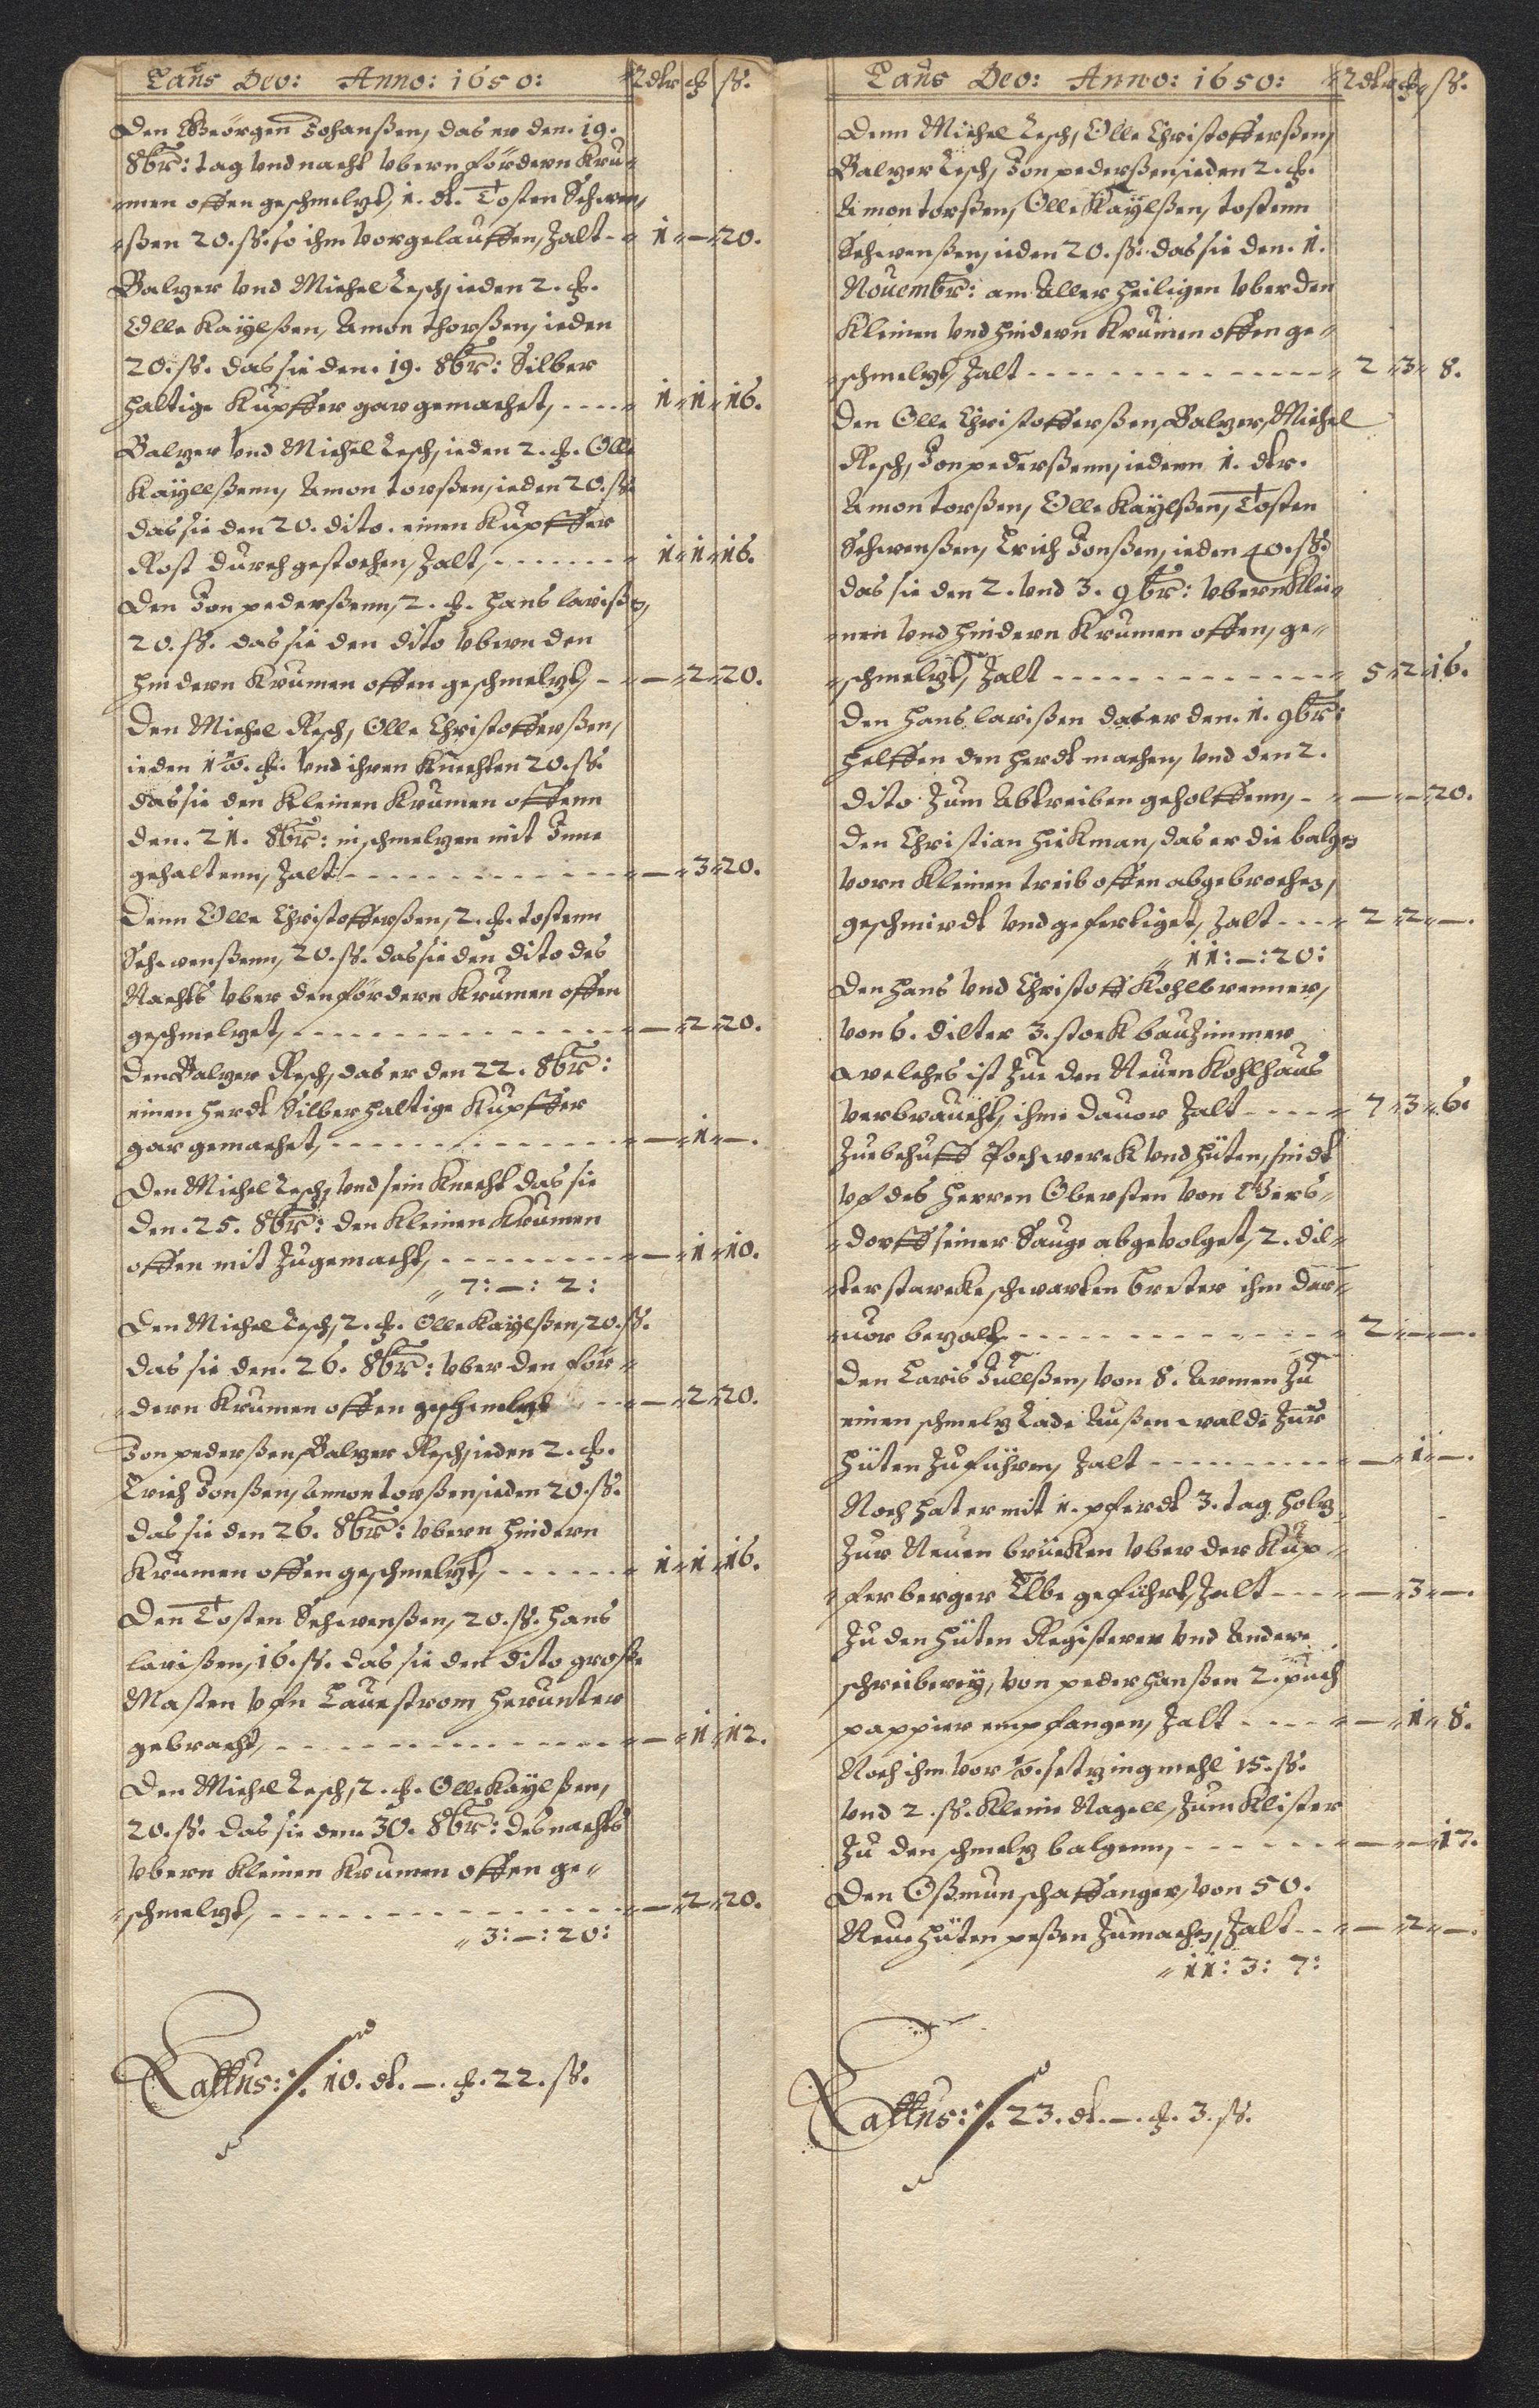 Laus Deo: Anno: 1650: Rdlr ƒ ß.
Den Geörgen Johanßen, das er den. 19.
8br̃: tag vnd nacht vbern fördern Kru-
men offen geschmelzt, 1. dt. Tosten Schwen-
ßen 20. ß. so ihm vorgelauffen, Zalt - 1 - — - 20.
Balzer vnd Michel Resch, ieden 2. ƒ.
Olle Kaÿlßen, Amon thorßen, ieden
20. ß. das sie den. 19. 8br̃: Silber
haltige Kupffer gar gemachet, - 1 - 1 - 16.
Balzer vnd Michel Resch, ieden 2. ƒ. Olle
Kaÿllßenn, Amon torßen, ieden 20. ß.
das sie den 20. dito. einen Kupffer
Rost durch gestochen, Zalt, - 1 - 1 - 16.
Den Jon pederßenn, 2. ƒ. Hans larißen,
20. ß. das sie den dito vbern den
hindern Krumen offen geschmelzt, - — - 2 - 20.
Den Michel Resch, Olle Christofferßen,
ieden 1½. ƒ. vnd ihren Knechten 20. ß.
das sie den Kleinen Krumen offenn
den. 21. 8br̃: in schmelzen mit Inne
gehaltenn, Zalt - — - 3 - 20.
Denn Olle Christofferßen, 2. ƒ. tostenn
Schwenßenn, 20. ß. das sie den dito des
Nachts vber den fördern Krumen offen
geschmelzet, - — - 2 - 20.
Den Balzer Resch, das er den 22. 8br̃:
einen herdt Silberhaltige Kupffer
gar gemachet, - — - 1 - —.
Den Michel Resch, vnd sein Knecht das sie
den. 25. 8br̃: den Kleinen Krumen
offen mit Zugemacht, - — - 1 - 10.
7: — : 2:
Den Michel Resch, 2. ƒ. Olle Kaÿlßen, 20. ß.
das sie den. 26. 8br̃: vber den för-
dern Krumen offen geschmelzt - — - 2 - 20.
Jon pederßen, Balzer Resch, ieden 2. ƒ.
Erich Jonßen, Amon torßen, ieden 20. ß.
das sie den 26. 8br̃: vbern hindern
Krumen offen geschmelzt, - 1 - 1 - 16.
Den Tosten Schwenßen, 20. ß. Hans
larißen, 16. ß. das sie den dito groste
Masten vfn Laue strom herunter
gebracht, - — - 1 - 12.
Den Michel Resch, 2. ƒ. Olle Kaÿlßen,
20. ß. das sie den. 30. 8br̃: des nachts
vbern Kleinen Krumen offen ge-
schmelzt, - — - 2 - 20.
3: — : 20:
Lattus: ./. 10. dt. —. ƒ. 22. ß.
Laus Deo: Anno: 1650: Rdlr ƒ ß.
Denn Michel Resch, Olle Christofferßen,
Balzer Resch, Jon pederßen, ieden 2. ƒ.
Amon torßen, Olle Kaÿlßen, tostenn
Schwenßen, ieden 20. ß. das sie den. 1.
Nouembr̃: am Aller heiligen vber den
Kleinen vnd hindern Krumen offen ge-
schmelzt, Zalt - 2 - 3 - 8.
Den Olle Christofferßen, Balzer, Michel
Resch, Jon pederßenn, iedenn 1. dtr.
Amon torßen, Olle Kaÿlßen, Tosten
Schwenßen, Erich Jonßen, ieden 40. ß.
das sie den 2. vnd 3. 9br̃: vbern Klei-
nen vnd hindern Krumen offen, ge-
schmelzt, Zalt - 5 - 2 - 16.
Den Hans larißen das er den. 1. 9br̃:
helffen den herdt machen, vnd den 2.
dito Zum Abtreiben geholffenn, - — - — - 20.
Den Christian Hickman, das er die balgen
vorn Kleinen treib offen abgebrochen,
geschmirdt vnd gefertiget, Zalt - 2 - 2 - —.
11: — : 20:
Den Hans vnd Christoff Kohlbrenner,
von 6. dilter 3. stock bauZimmer
welches ist Zue den Neuen Kohlhaus
verbraucht, ihme dauor Zalt - 7 - 3 - 6.
Zuebehuff Pochwerck vnd hüten, sindt
vf des Herren Obersten von Gers-
dorff seiner Sauge abgevolget, 2. dil-
ter starcke schwarten breter ihm dar-
uor bezalt, - 2 - — - —.
Den Laris Jullßen, von 8. Armen Zu
einen schmelz Lade Außen walde Zur
hüten Zuführen, Zalt - — - 1 - —.
Noch hat er mit 1. pferdt 3. tag holz
Zur Neuen brücken vber der Kup-
ferberger Elbe geführt, Zalt - — - 3 - —.
Zu den hüten Registeren vnd Andere
schreiberey, von peder Hanßen 2. puch
pappier empfangen, Zalt - — - 1 - 8.
Noch ihm vor ½. setzing mehl 15. ß.
vnd 2. ß. Kleine Nagell, Zum Klister
Zu den schmelz balgenn, - — - — - 17.
Den Oßmun schaffanger, von 50.
Neue hüten peßen Zumachen, Zalt - — - 2 - —.
11: 3: 7:
Lattus: ./. 23. dt. —. ƒ. 3. ß.